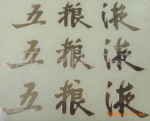 五粮液
五粮液
五粮液